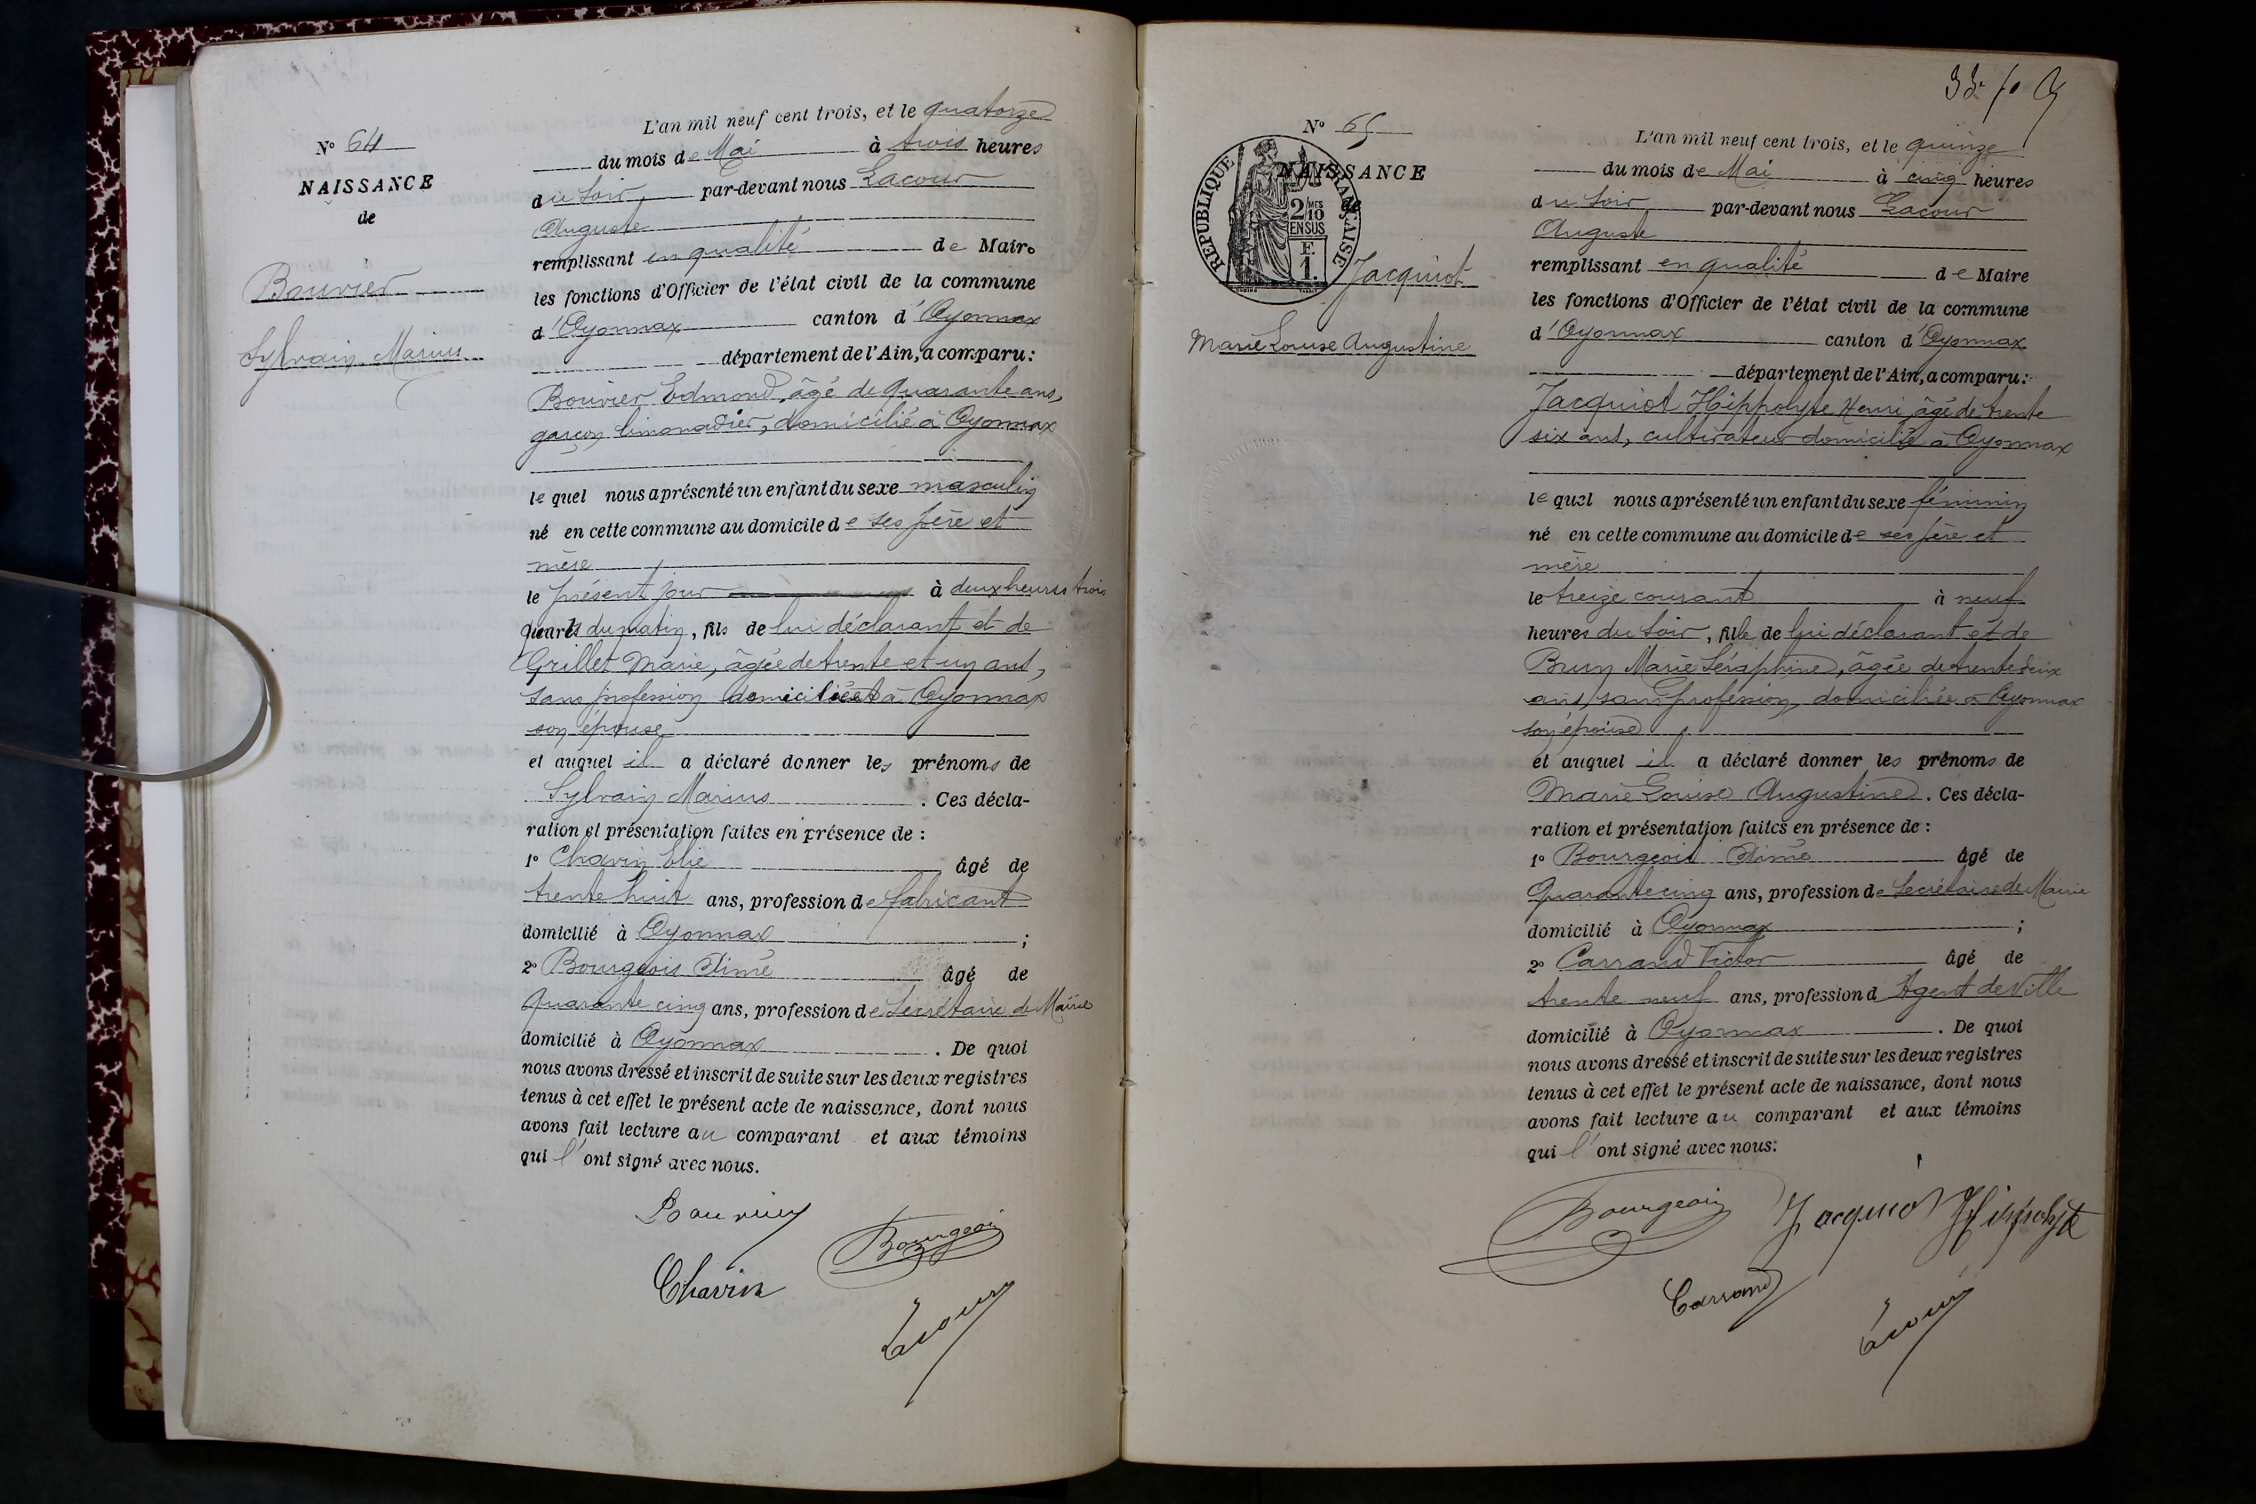 N° 64
NAISSANCE
de
Bouvier
Sylvain Marius
L'an mil neuf cent trois, et le quatorze
du mois de Mai à trois heures
du soir, par-devant nous Lacour
Auguste
remplissant en qualité de Maire
les fonctions d'Officier de l'état civil de la commune
d'Oyonnax canton d'Oyonnax
département de l'Ain, a comparu :
Bouvier Edmond, âgé de quarante ans,
garçon limonadier, domicilié à Oyonnax
lequel nous a présenté un enfant du sexe masculin
né en cette commune au domicile de ses père et
mère
le présent jour à deux heures trois
quarts du matin, fils de lui déclarant et de
Grillet Marie, âgée de trente et un ans,
sans profession domiciliée à Oyonnax
son épouse
et auquel il a déclaré donner les prénoms de
Sylvain Marius. Ces décla-
ration et présentation faites en présence de :
1° Chavin Elie âgé de
trente huit ans, profession de fabricant
domicilié à Oyonnax ;
2° Bourgeois Aimé âgé de
Quarante cinq ans, profession de Secrétaire de Mairie
domicilié à Oyonnax. De quoi
nous avons dressé et inscrit de suite sur les deux registres
tenus à cet effet le présent acte de naissance, dont nous
avons fait lecture au comparant et aux témoins
qui l'ont signé avec nous.
Bouvier
Bourgeois
Chavin
Lacour
33e fo
N° 65
NAISSANCE
de
RÉPUBLIQUE FRANÇAISE
2/10 MES
EN SUS
F.
1.
Jacquiot
Marie Louise Augustine
L'an mil neuf cent trois, et le quinze
du mois de Mai à cinq heures
du soir par-devant nous Lacour
Auguste
remplissant en qualité de Maire
les fonctions d'Officier de l'état civil de la commune
d'Oyonnax canton d'Oyonnax
département de l'Ain, a comparu :
Jacquiot Hippolyte Henri, âgé de trente
six ans, cultivateur domicilié à Oyonnax
lequel nous a présenté un enfant du sexe féminin
né en cette commune au domicile de ses père et
mère
le treize courant à neuf
heures du soir, fille de lui déclarant et de
Brun Marie Séraphine, âgée de trente deux
ans, sans profession, domiciliée à Oyonnax
son épouse
et auquel il a déclaré donner les prénoms de
Marie Louise Augustine. Ces décla-
ration et présentation faites en présence de :
1° Bourgeois Aimé âgé de
Quarante cinq ans, profession de Secrétaire de Mairie
domicilié à Oyonnax ;
2° Carrand Victor âgé de
trente neuf ans, profession d Agent de Ville
domicilié à Oyonnax. De quoi
nous avons dressé et inscrit de suite sur les deux registres
tenus à cet effet le présent acte de naissance, dont nous
avons fait lecture au comparant et aux témoins
qui l'ont signé avec nous.
Bourgeois
Jacquiot Hippolyte
Carrand
Lacour